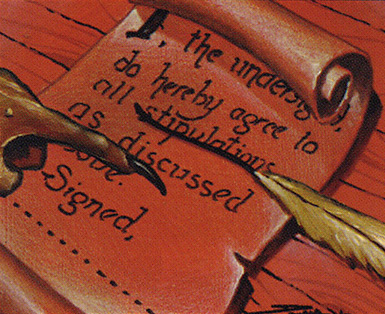 I, the undersigned,
do hereby agree to
all stipulations
as discussed
above.
Signed,